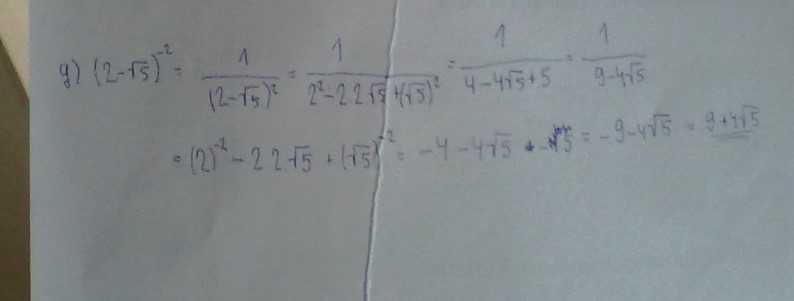 g) (2-√5)⁻² = 1/(2-√5)² = 1/(2²-22√5+(√5)²) = 1/(4-4√5+5) = 1/(9-4√5)
= (2)⁻² - 22√5 + (√5)⁻² = -4-4√5 -5 = -9-4√5 = 9+4√5